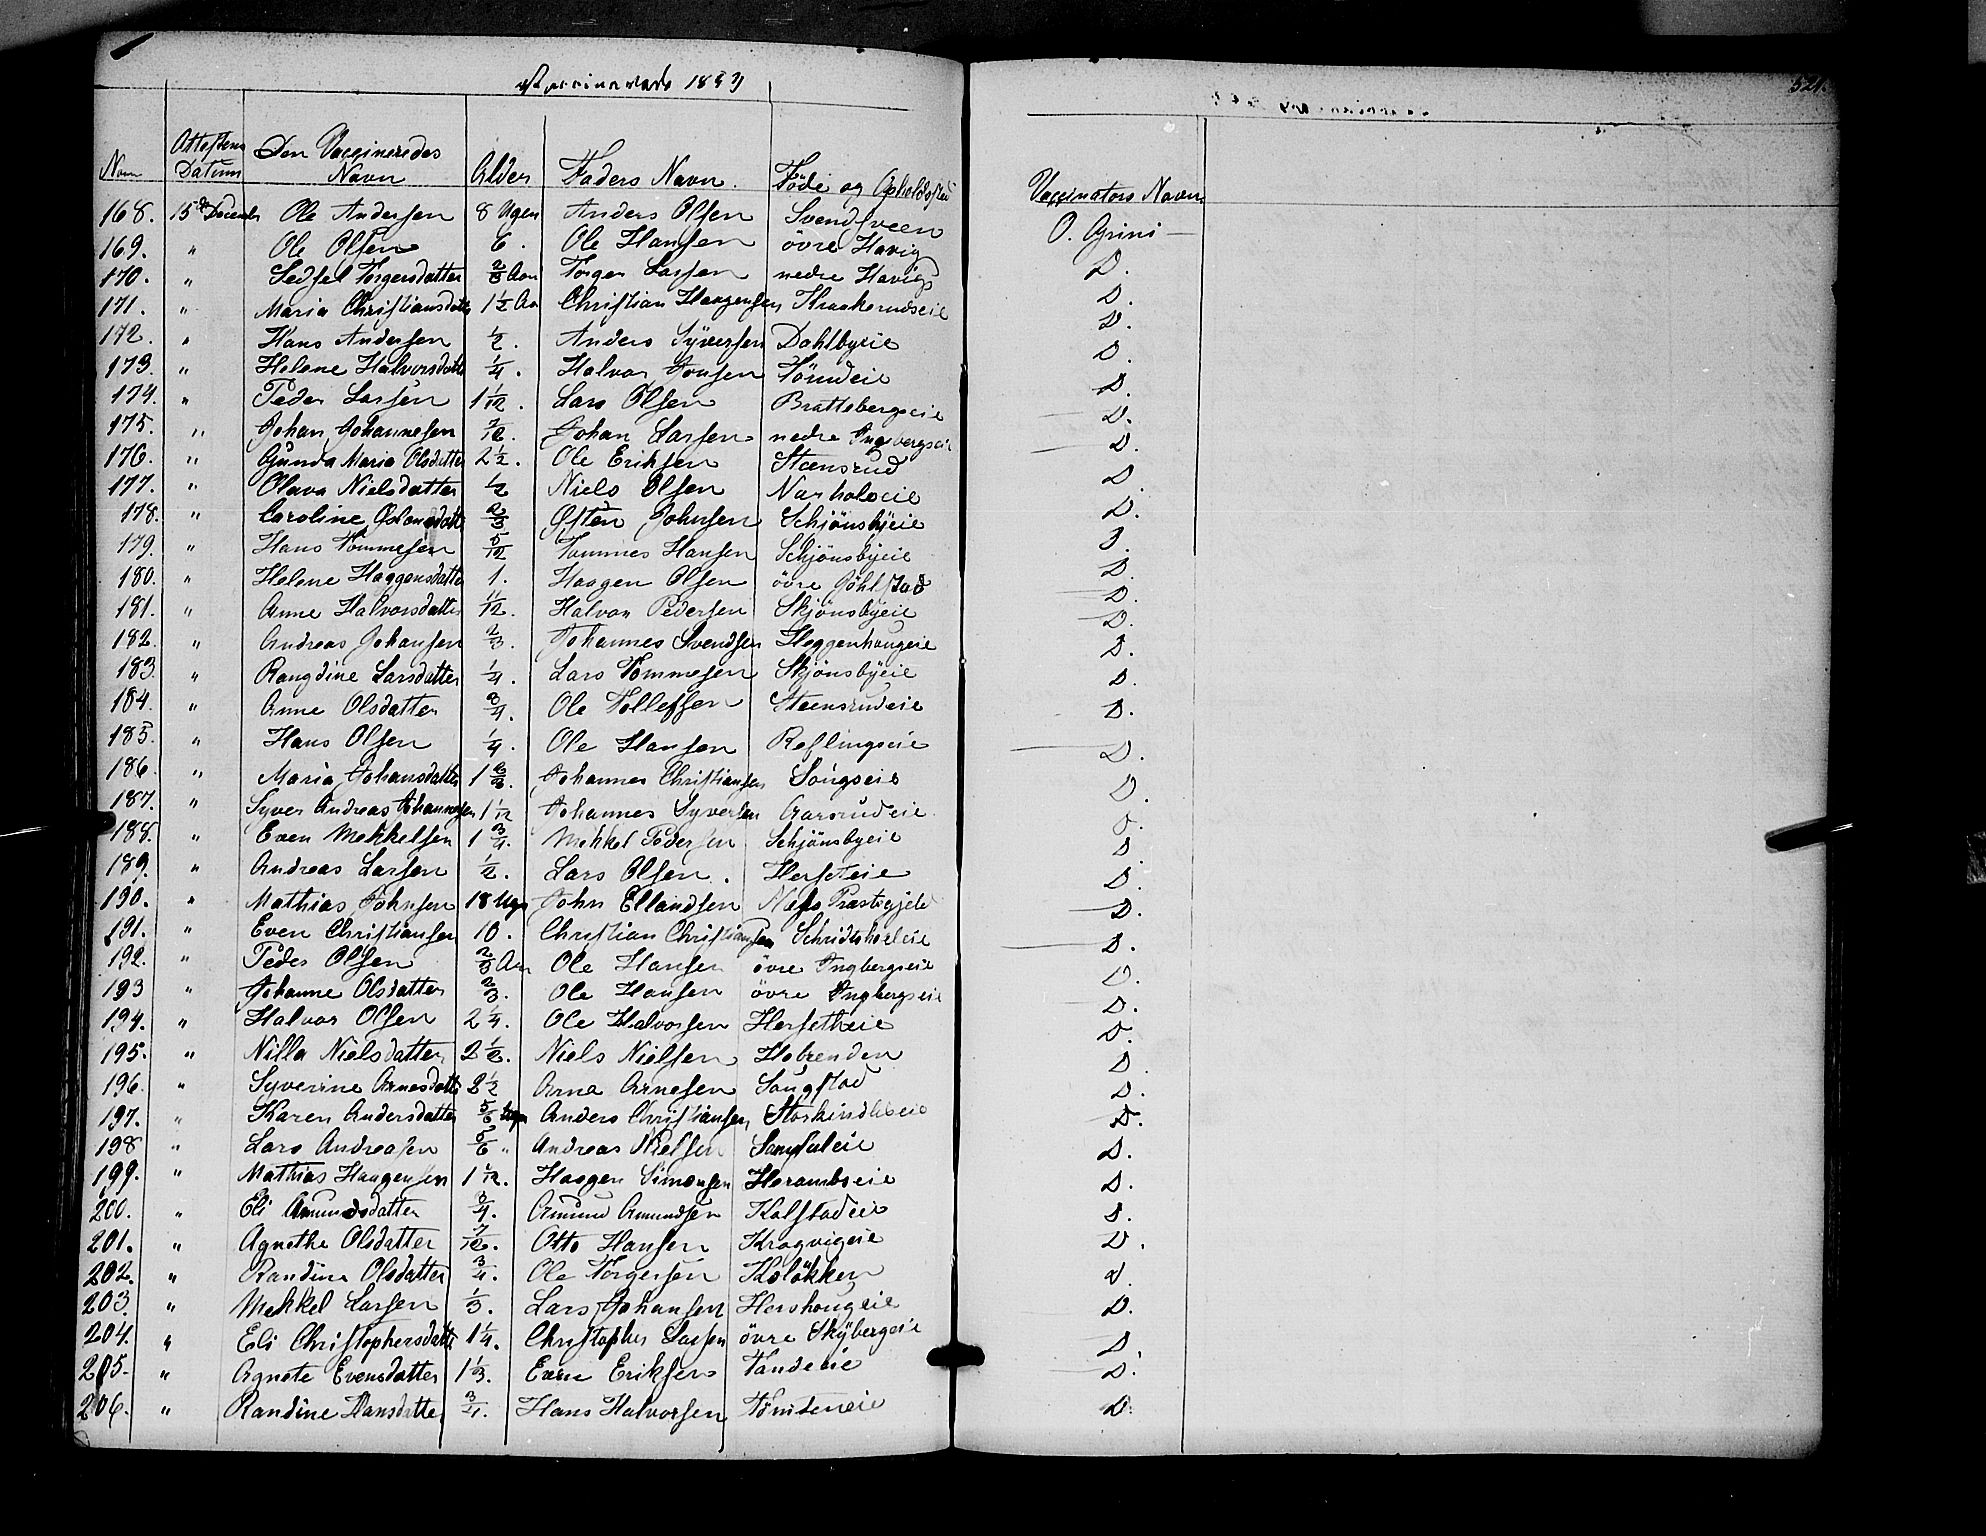 Vaccinerede 1859
521.
Num Attestens Datum Den Vaccineredes Navn Alder Faders Navn. Føde og Opholdssted Vaccinators Navn
168. 15de December Ole Andersen 8 Ugen Anders Olsen Svendsveen O. Grini —
169. " Ole Olsen 6. Ole Hansen øvre Havig D.
170. " Sedsel Torgersdatter 2/3 Aar Torger Larsen nedre Havig D.
171. " Maria Christiansdatter 1 1/2 Aar Christian Haagensen Kraakerudseie D.
172. " Hans Andersen 1/2. Anders Syversen Dahlbyeie D.
173. " Helene Halvorsdatter 1/4. Halvor Jonsen D.
174. " Peder Larsen 1 1/12. Lars Olsen Brattebergseie D.
175. " Johan Johannesen 7/12. Johan Larsen nedre Ingebergseie D.
176. " Gunda Maria Olsdatter 2 1/2. Ole Eriksen Steensrud D.
177. " Olava Nielsdatter 1/2 Niels Olsen Narholseie D.
178. " Caroline Østensdatter 2/3 Østen Johnsen Schjønsbyeie D.
179. " Hans Tommesen 5/12 Tommes Hansen Schjønsbyeie D.
180. " Helene Haagensdatter 1. Haagen Olsen øvre Gøhlstad D.
181. " Anne Halvorsdatter 11/12. Halvor Pedersen Skjønsbyeie D.
182. " Andreas Johansen 2/3. Johannes Svendsen Heggenhaugeie D.
183. " Rangdine Larsdatter 1/4. Lars Tommesen Skjønsbyeie D.
184. " Anne Olsdatter 3/4. Ole Tollefsen Steensrudeie D.
185. " Hans Olsen 1/4. Ole Hansen Reflingseie D.
186. " Maria Johansdatter 1 2/3. Johannes Christiansen Sougseie D.
187. " Syver Andreas Johannesen 1 1/12 Johannes Syversen Aarsrudeie D.
188. " Even Mekkelsen 1 3/4. Mekkel Pedersen Schjønsbyeie D.
189. " Andreas Larsen 1/2. Lars Olsen. Herseteie D.
190. " Mathias Johnsen 18 Uger John Ellandsen Næs Præstegjeld D.
191. " Even Christiansen 10. Christian Christiansen D.
192. " Peder Olsen 2/3 Aar Ole Hansen øvre Ingbergseie D.
193 " Johanne Olsdatter 2/3. Ole Hansen øvre Ingbergseie D.
194. " Halvor Olsen 2 1/4. Ole Halvorsen Hersetheie D.
195. " Nilla Nielsdatter 2 1/2. Niels Nielsen D.
196. " Syverine Arnesdatter 2 1/2 Arne Arnesen Saugstad D.
197. " Karen Andersdatter 5/6 Anders Christiansen D.
198 " Lars Andreasen 5/6 " Andreas Nielsen D.
199. " Mathias Haagensen 1 1/12. Haagen Simonsen Horambseie D.
200. " Eli Amundsdatter 3/4. Amund Amundsen Kolstadeie D.
201. " Agnethe Olsdatter 7/12. Otto Hansen Kragvigeie D.
202. " Randine Olsdatter 3/4. Ole Torgersen Koløkken D.
203. " Mekkel Larsen 1/3. Lars Johansen Hershougeie D.
204. " Eli Christophersdatter 1 1/4. Christopher Larsen øvre Skybergeie D.
205. " Agnete Evensdatter 1 1/3. Even Eriksen D.
206. " Randine Hansdatter 3/4. Hans Halvorsen D.